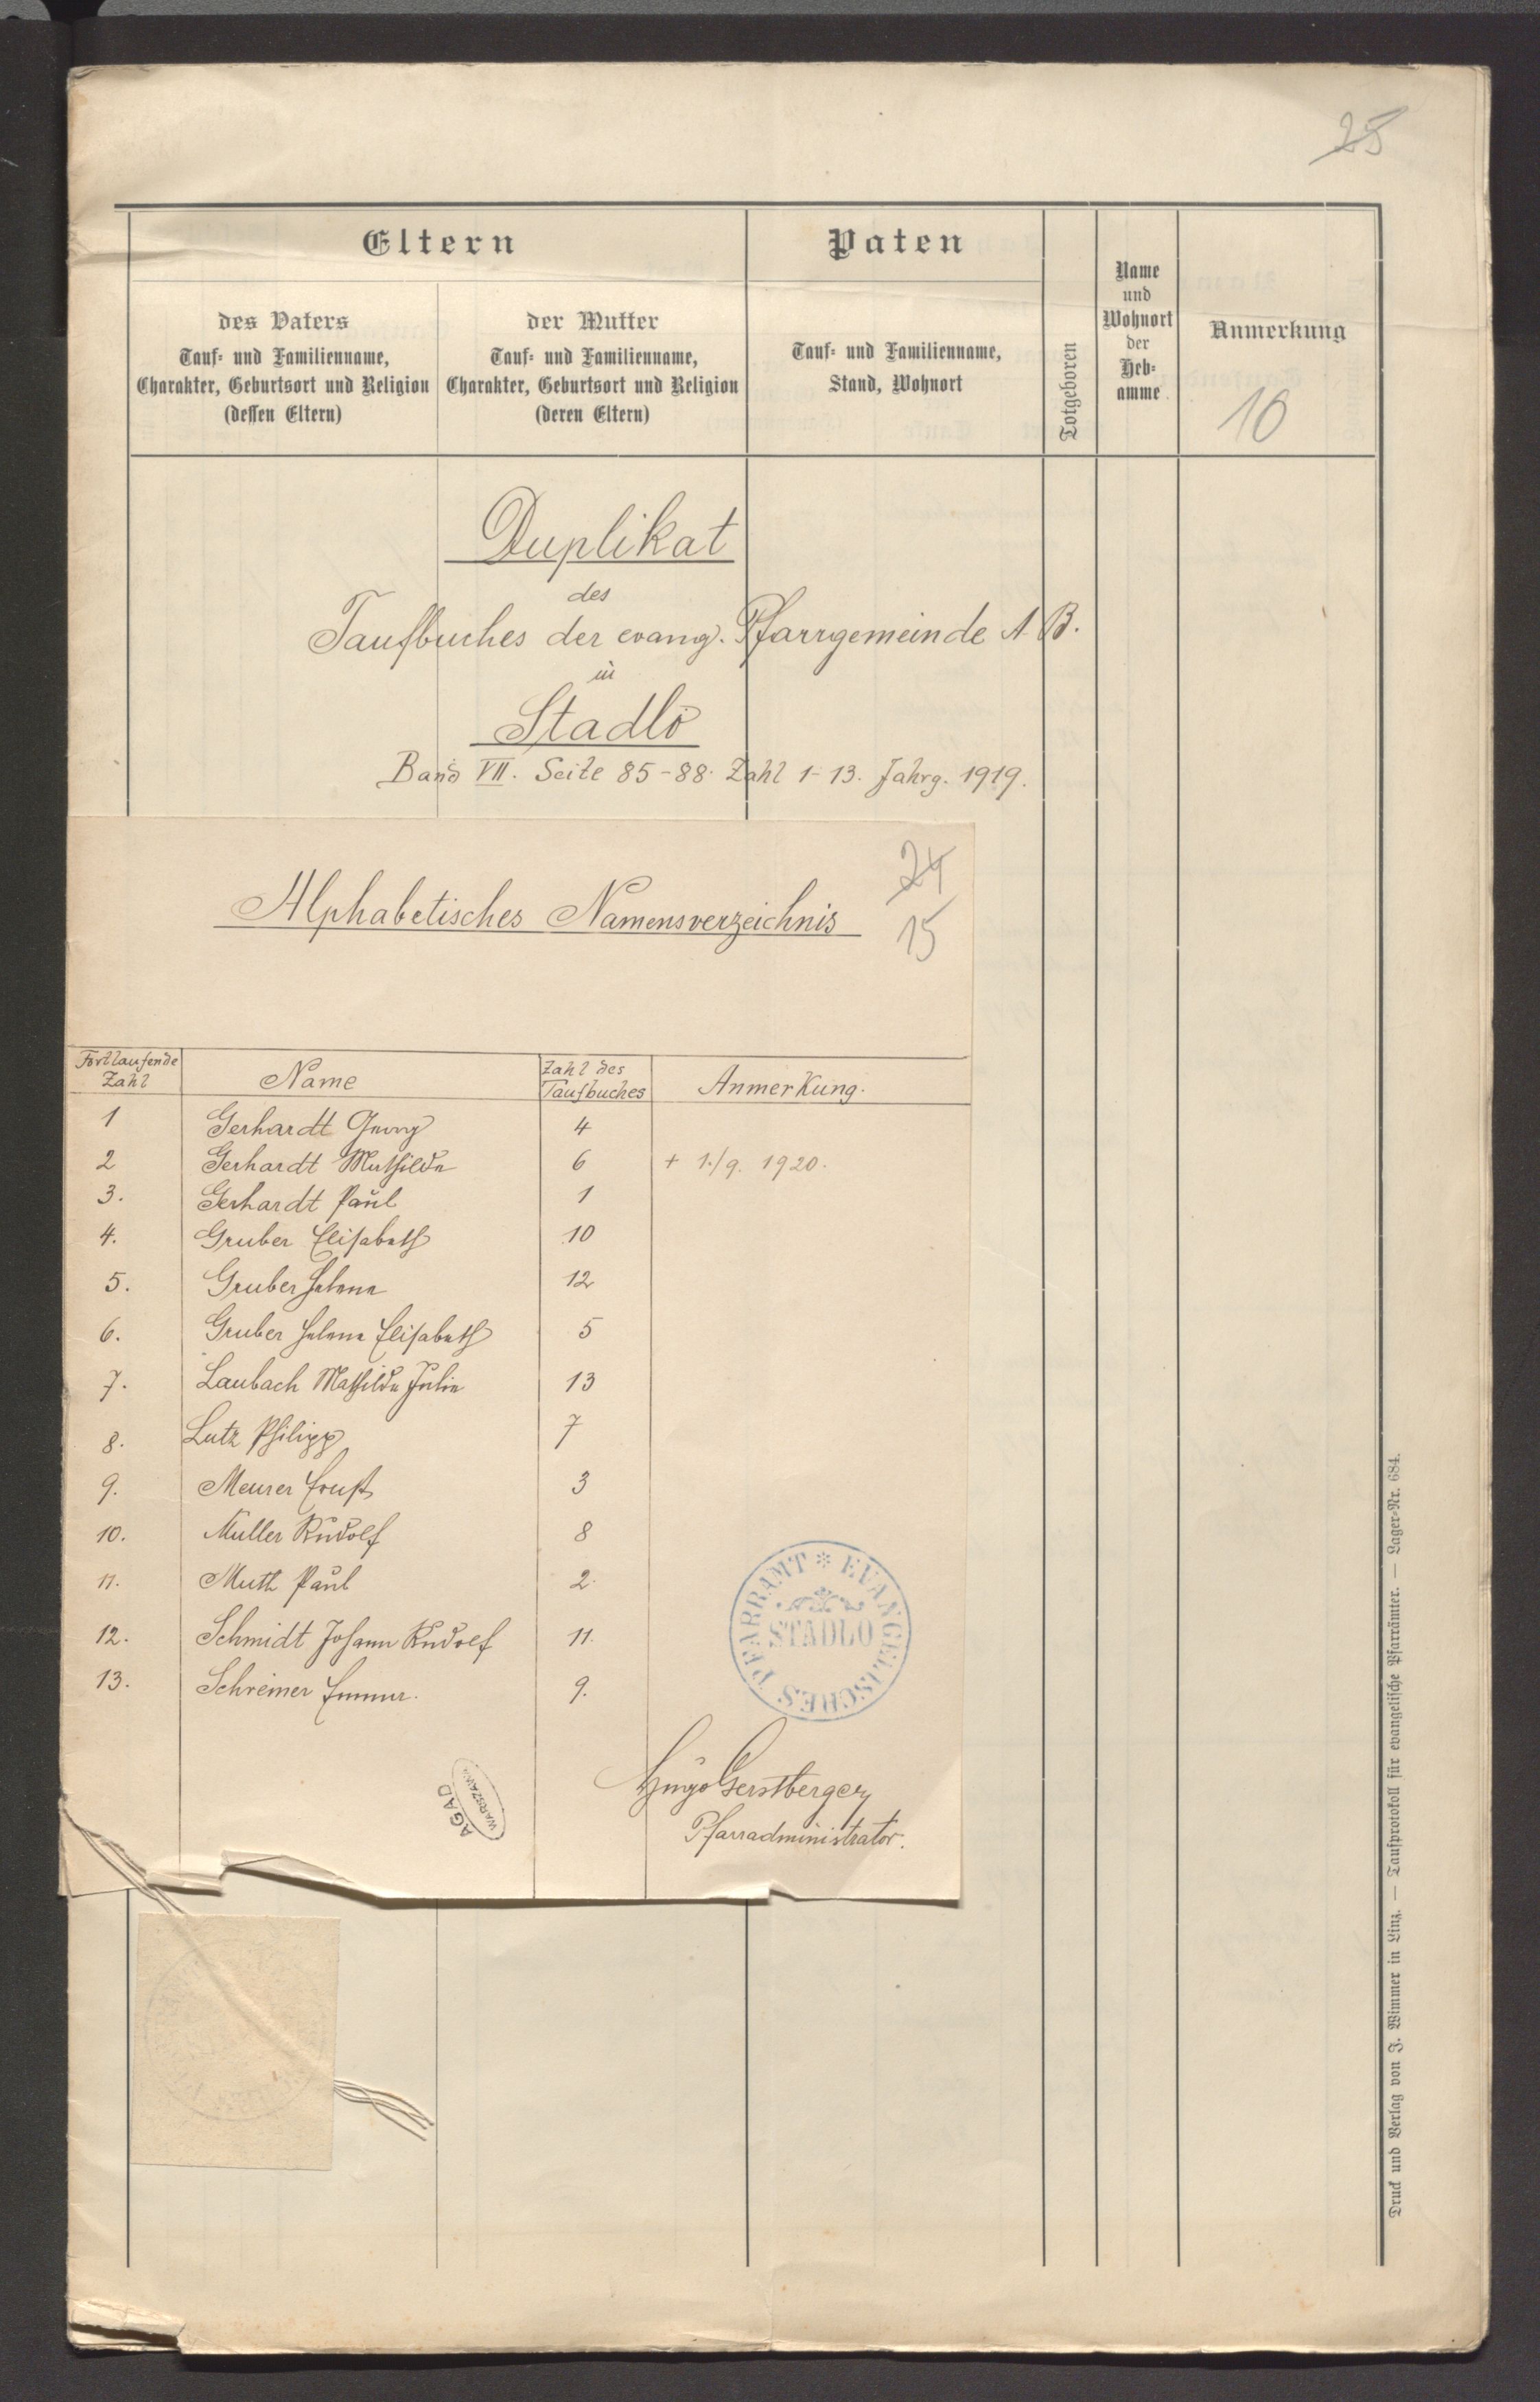 25
Eltern
Paten
Totgeboren
Name
und
Wohnort
der
Heb-
amme
Anmerkung
des Vaters
Tauf- und Familienname,
Charakter, Geburtsort und Religion
(dessen Eltern)
der Mutter
Tauf- und Familienname,
Charakter, Geburtsort und Religion
(deren Eltern)
Tauf- und Familienname,
Stand, Wohnort
16
Duplikat
des
Taufbuches der evang. Pfarrgemeinde A. B.
in
Stadlo
Band VII. Seite 85-88. Zahl 1-13. Jahrg. 1919.
24
15
Alphabetisches Namensverzeichnis
Fortlaufende Zahl Name Zahl des Taufbuches Anmerkung.
1 Gerhardt Georg 4
2 Gerhardt Mathilde 6 + 1./9. 1920.
3. Gerhardt Paul 1
4. Gruber Elisabeth 10
5. Gruber Helene 12
6. Gruber Helene Elisabeth 5
7. Laubach Mathilde Julie 13
8. Lutz Philipp 7
9. Meurer Ernst 3
10. Müller Rudolf 8
11. Muth Paul 2.
12. Schmidt Johann Rudolf 11.
13. Schreiner Emma. 9.
EVANGELISCHES PFARRAMT
STADLO
Hugo Gerstberger
Pfarradministrator.
AGAD
WARSZAWA
Druck und Verlag von J. Wimmer in Linz. — Taufprotokoll für evangelische Pfarrämter. — Lager-Nr. 684.